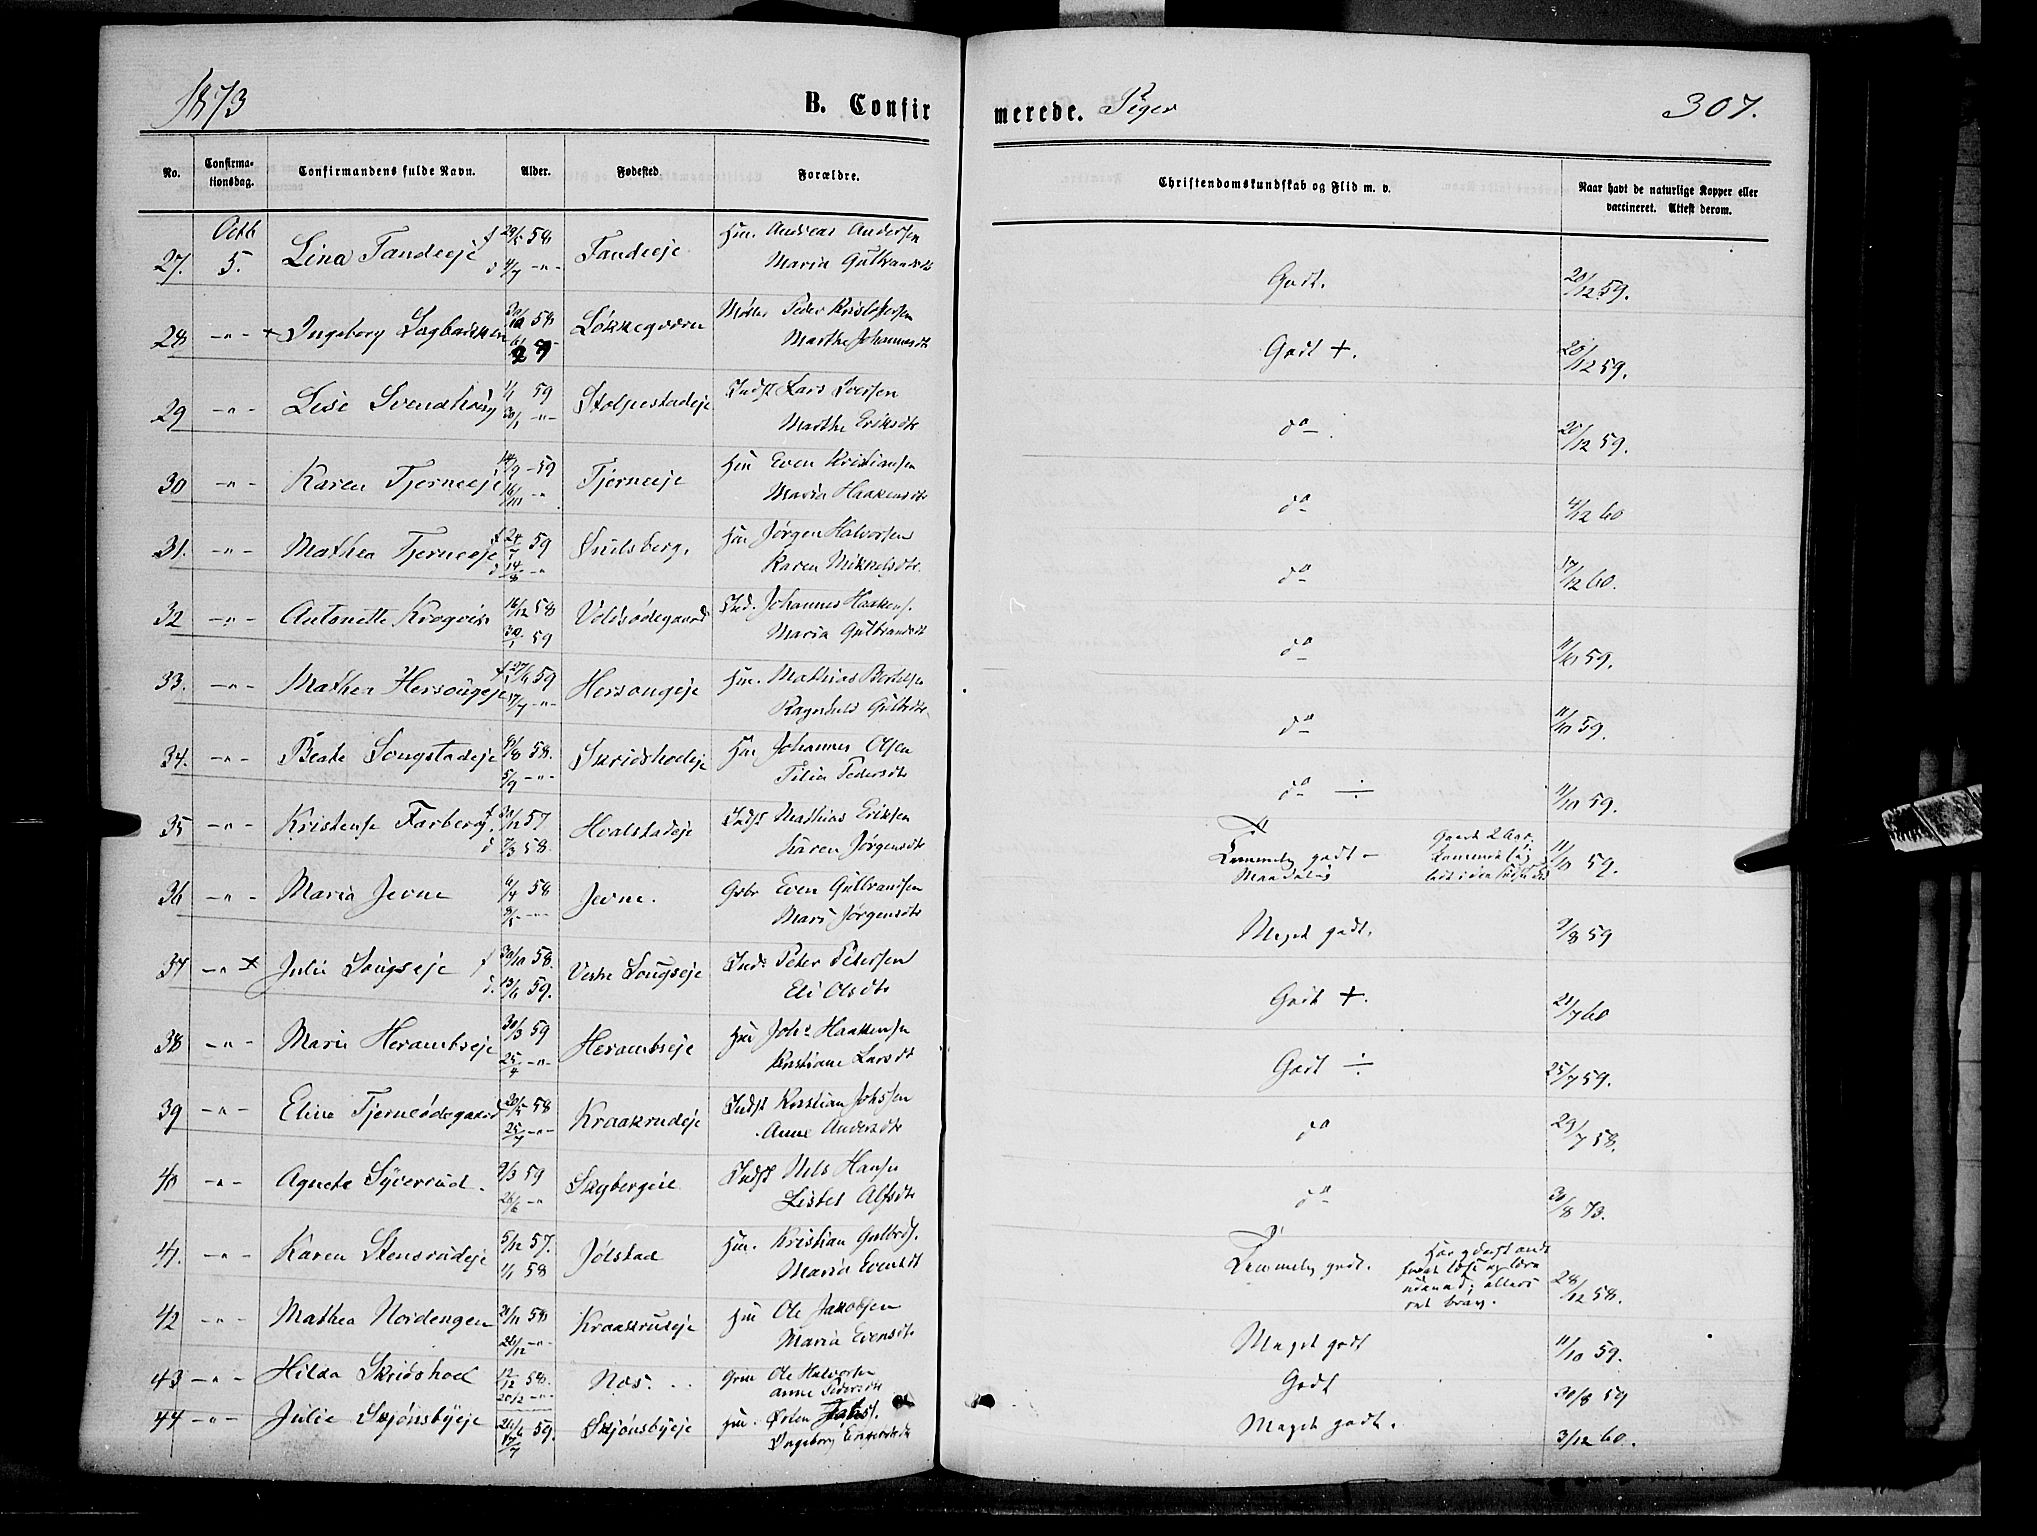 1873
B. Confirmerede. Piger
307.
No. Confirmationsdag. Confirmandens fulde Navn. Alder. Fødested. Forældre. Christendomskundskab og Flid m. v. Naar havt de naturlige Kopper eller vaccineret. Attest derom.
Octb
27. 5. Lina Tandeeje f 29/5 58 Tandeeje Hm. Andreas Andersen Godt. 20/12 59.
d 4/7 -"- Maria Gulbrandsdt
28 -"- + Ingeborg 58 Løkkegaarn Møller Peder Kristophersen Godt +. 20/12 59.
Marthe Johannesdt
29 -"- Lise 1/1 59 Stolpestadeje Indst Lars Iversen do 20/12 59.
30/1 -"- Marthe Eriksdt
30 -"- Karen Tjerneeje 14/9 -59 Tjerneeje Hm Even Kristiansen do 4/12 60
16/10 -"- Maria Haakensdt
31. -"- Mathea Tjerneeje f 24/7 59 Snilsberg, Hm Jørgen Halvorsen do 17/12 60.
d 14/8 -"- Karen Mikkelsdt.
32 -"- Antonette Krogvig 16/12 58 Voldsødegaard Ind. Johannes Haakens. do 11/10 59.
30/1 59 Maria Gulbrandsdt
33. -"- Mathea Hersougeje f 27/6 59 Hersougeje Hm. Mathias Bertelsen do 11/10 59.
17/7 -"- Ragnhild Gulbrdt.
34. -"- Beate Sougstadeje 9/8 58. Skridshodeje Hm Johannes Olsen do ÷ 11/10 59.
5/9 -"- Tilia Pedersdt
35 -"- Kristense Farberg. f 30/12 57 Hvalstadeje Indst Mathias Eriksen Temmelig godt - Gaaet 2 Aar, 11/10 59.
d 7/3 58. Karen Jørgensdt Maadelig
36 -"- Maria Jevne 6/4 58 Jevne. Gbr Even Gulbrandsen Meget godt. 9/8 59
9/5 -"- Mari Jørgensdt
37 -"- + Julie Sougseje f 30/10 58. Vestre Sougseje Inds Peter Petersen Godt +. 21/7 60
d. 13/6 59. Eli Olsdt
38 -"- Marie Herambseje 30/3 59 Herambseje Hm Johs Haakensen Godt ÷ 25/7 59.
25/4 -"- Kristiane Larsdt
39 -"- Elina Tjerneødegaard 20/5 58 Kraakrudeje Indst Kristian Johssen do 29/7 58.
25/7 -"- Anne Andersdt
40 -"- Agnete Syverrud. 2/3 59 Skybergeie Indst Nils Hansen do 30/8 73.
26/6 -"- Lisbet Alfsdt
41. -"- Karen Stensrudeje 5/12 57. Jølstad Hm. Kristian Gulbrds. Temmelig godt. Har ydest ondt 28/12 58.
1/1 58 Maria Evensdt for at læse og lære udenad; ellers ret brav.
42 -"- Mathea Nordengen 21/11 58 Kraakrudeje Hm Ole Jakobsen Meget godt 11/10 59.
26/12 -"- Maria Evensdt
43 -"- Hilda Skridshod 12/12 58. Næs. Ole Halvorsen Godt 30/8 59
Anne Pedersdt
44 -"- Julie Skjønsbyeje 26/6 59. Skjønsbyeje Hm. Østen Meget godt. 3/12 60.
17/7 Ingeborg Engebretsdt